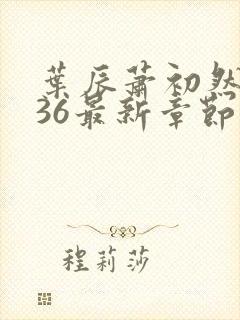 葉辰蕭初然
36最新章節
程莉莎